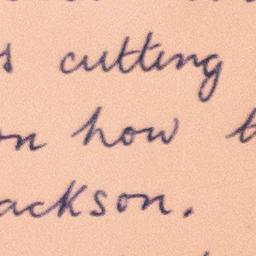 s cutting
on how
ackson.